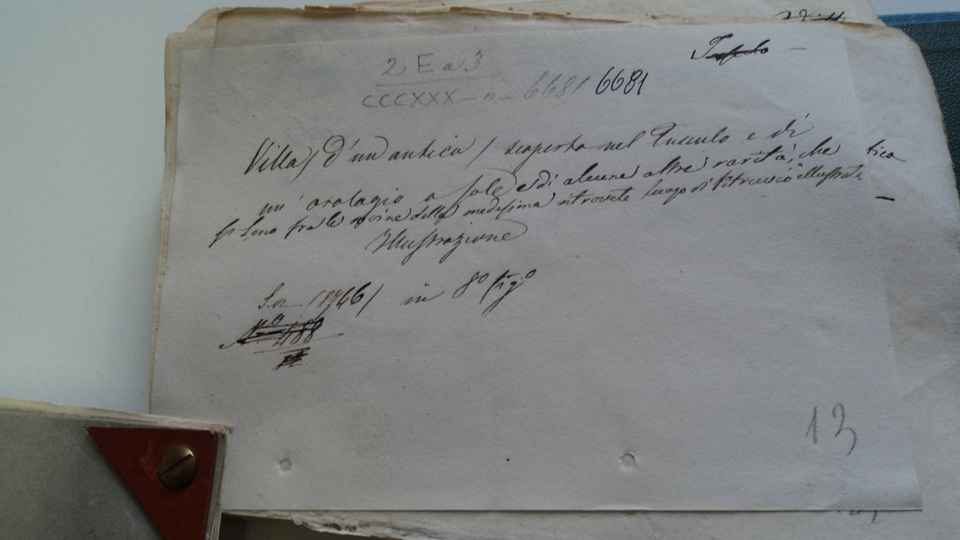 2 E a 3
CCCXXX - n - 6681 6681
Villa / d'un antica / scoperta nel Tusculo e di
un' orologio a Sole e di alcune altre rarità, che
fra le rovine della medesima ritrovate luogo di Vitruvio illustrato
Illustrazione
/1746/ in 8° fig°
N° 488
13